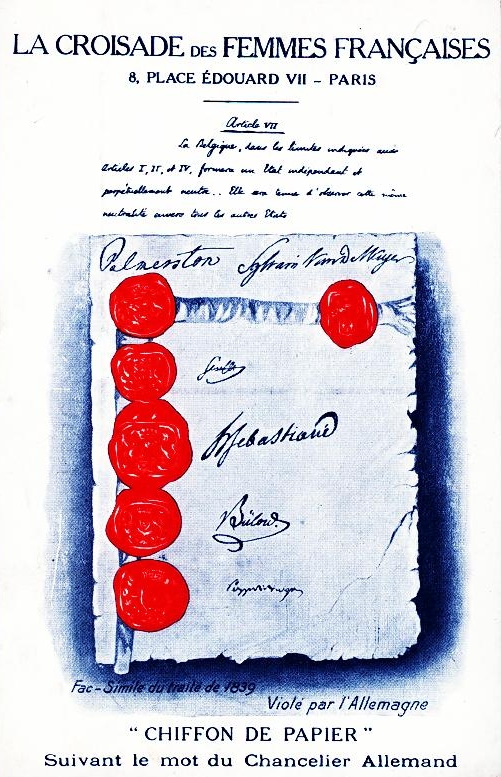 LA CROISADE DES FEMMES FRANÇAISES
8, PLACE ÉDOUARD VII – PARIS
Article VII
La Belgique, dans les limites indiquées aux
articles I, II, et IV, formera un Etat indépendant et
perpétuellement neutre.. Elle sera tenue d'observer cette même
neutralité envers tous les autres Etats
Palmerston Sylvain Van de Weyer
Senfft
H Sebastiani
Bülow.
Fac-Simile du traité de 1839
Violé par l'Allemagne
“ CHIFFON DE PAPIER ”
Suivant le mot du Chancelier Allemand